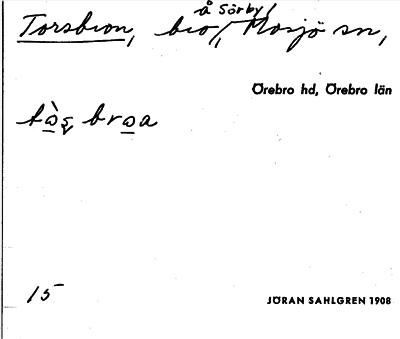 Torsbron, bro, å Sörby, Mosjö sn,
Örebro hd, Örebro län
bra̲a
15
JÖRAN SAHLGREN 1908